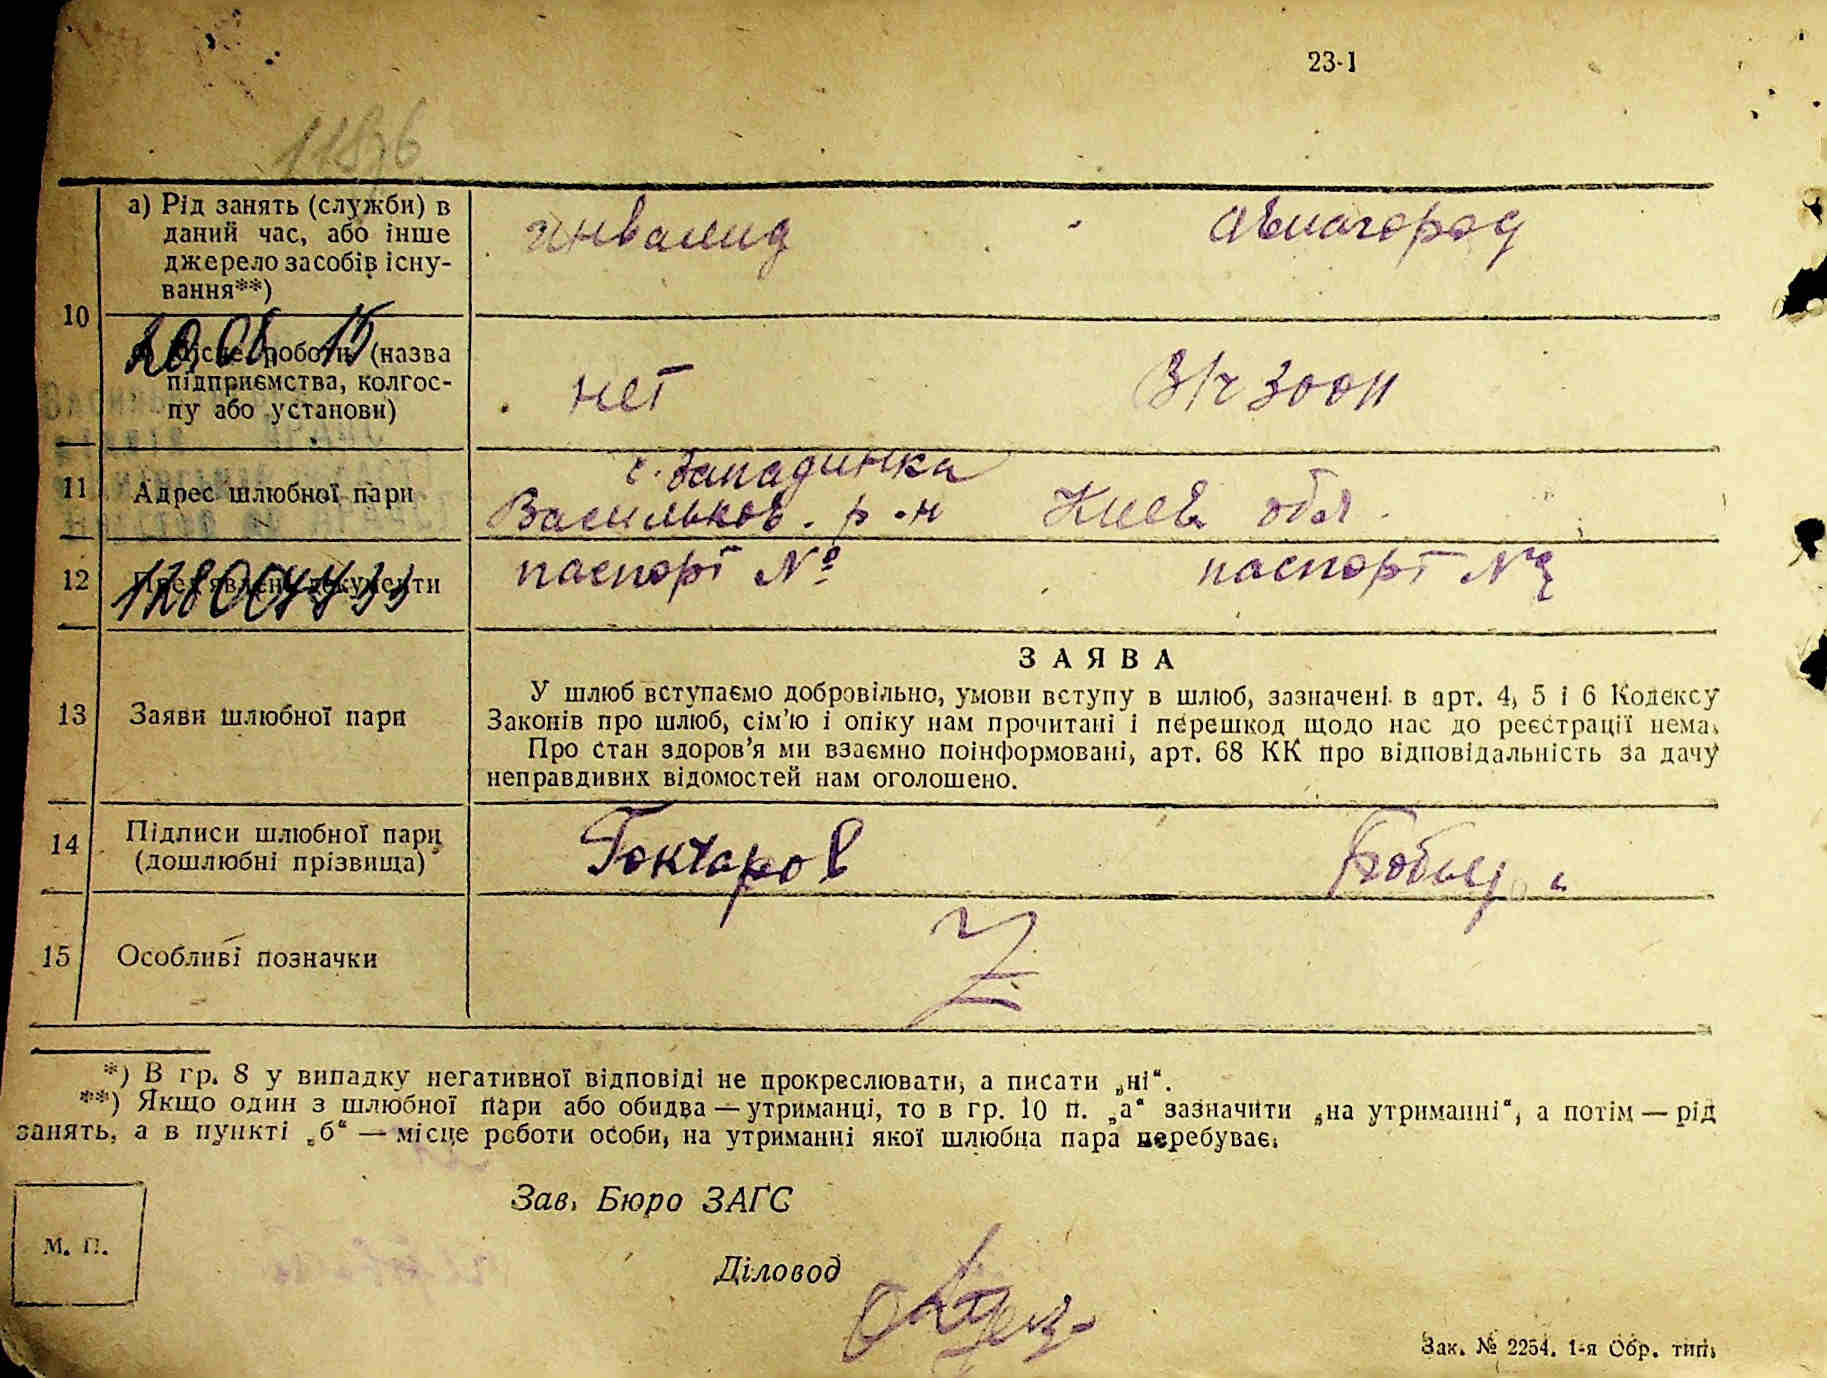 23-1
11876
а) Рід занять (служби) в
даний час, або інше
джерело засобів існу-
вання**)
инвалид
авиагород
10
20.08. 15
місце роботи (назва
підприємства, колгос-
пу або установи)
нет
В/ч
11
Адрес шлюбної пари
с. Западинка
Васильков. р-н Киев. обл.
12
Пред'явлені документи
паспорт №
паспорт №
ЗАЯВА
13
Заяви шлюбної пари
У шлюб вступаємо добровільно, умови вступу в шлюб, зазначені в арт. 4, 5 і 6 Кодексу
Законів про шлюб, сім'ю і опіку нам прочитані і перешкод щодо нас до реєстрації нема.
Про стан здоров'я ми взаємно поінформовані, арт. 68 КК про відповідальність за дачу
неправдивих відомостей нам оголошено.
14
Підписи шлюбної пари
(дошлюбні прізвища)
Гончаров
15
Особливі позначки
*) В гр. 8 у випадку негативної відповіді не прокреслювати, а писати „ні“.
**) Якщо один з шлюбної пари або обидва — утриманці, то в гр. 10 п. „а“ зазначити „на утриманні“, а потім — рід
занять, а в пункті „б“ — місце роботи особи, на утриманні якої шлюбна пара перебуває.
Зав. Бюро ЗАГС
М. П.
Діловод
Зак. № 2254. 1-я Обр. тип.